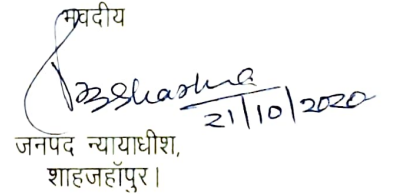 भवदीय
21/10/2020
जनपद न्यायाधीश,
शाहजहॉपुर।